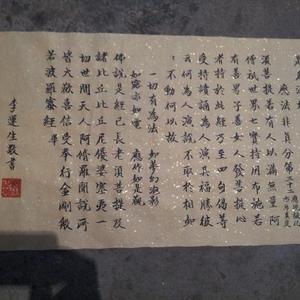 應化非真分第三十二
須菩提若有人以滿無量阿
僧祇世界七寶持用布施若
有善男子善女人發菩提心
者持於此經乃至四句偈等
受持讀誦為人演其福勝彼
云何為人演說不取於相如
不動何以故
一切有為法 如夢幻泡影
如露亦如電 應作如是觀
佛說是經已長老須菩提及
諸比丘比丘尼優婆塞夷一
切世間天人阿脩羅聞
皆大歡喜信受奉行金剛般
若波羅蜜經
李運生敬書